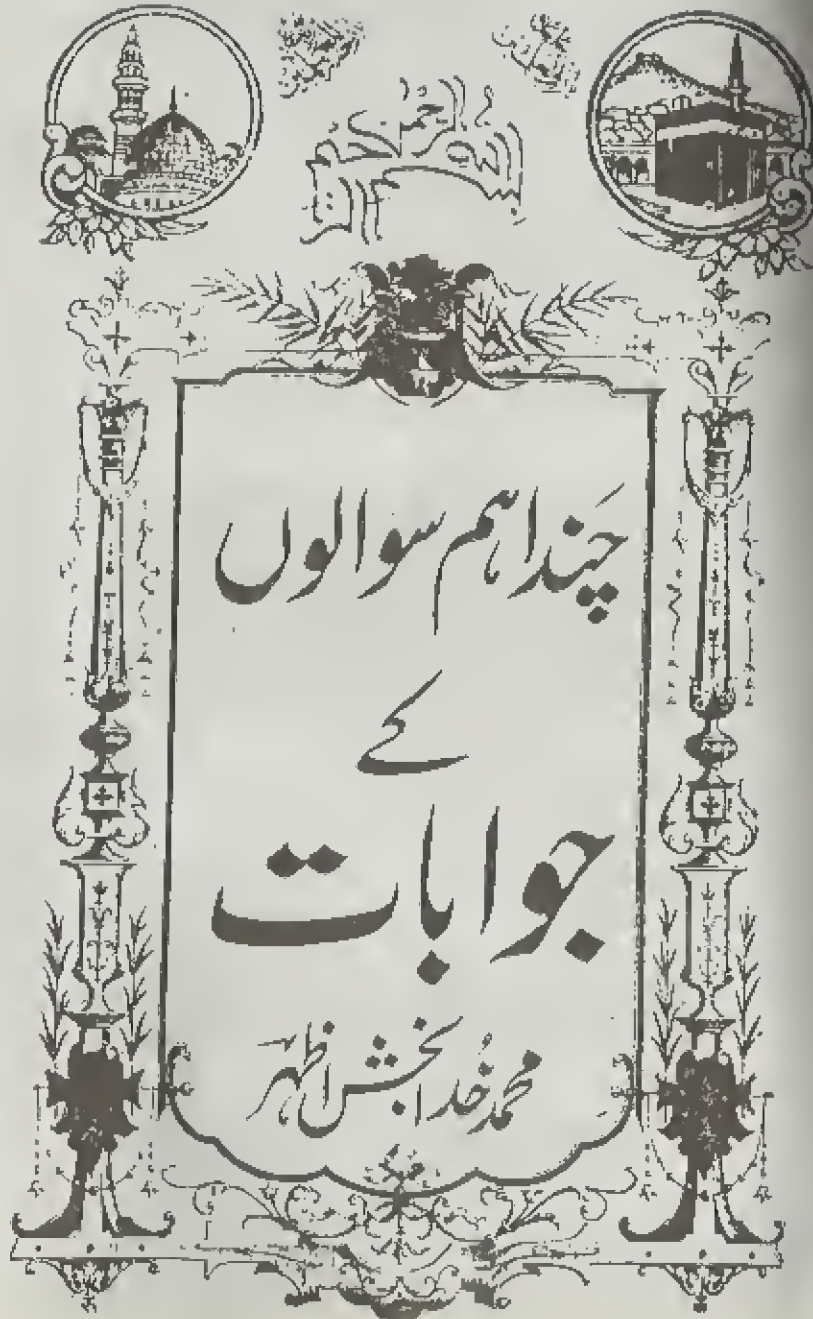 بسم اللہ الرحمن الرحیم
چند اہم سوالوں
کے
جوابات
محمد خدا بخش اظہر